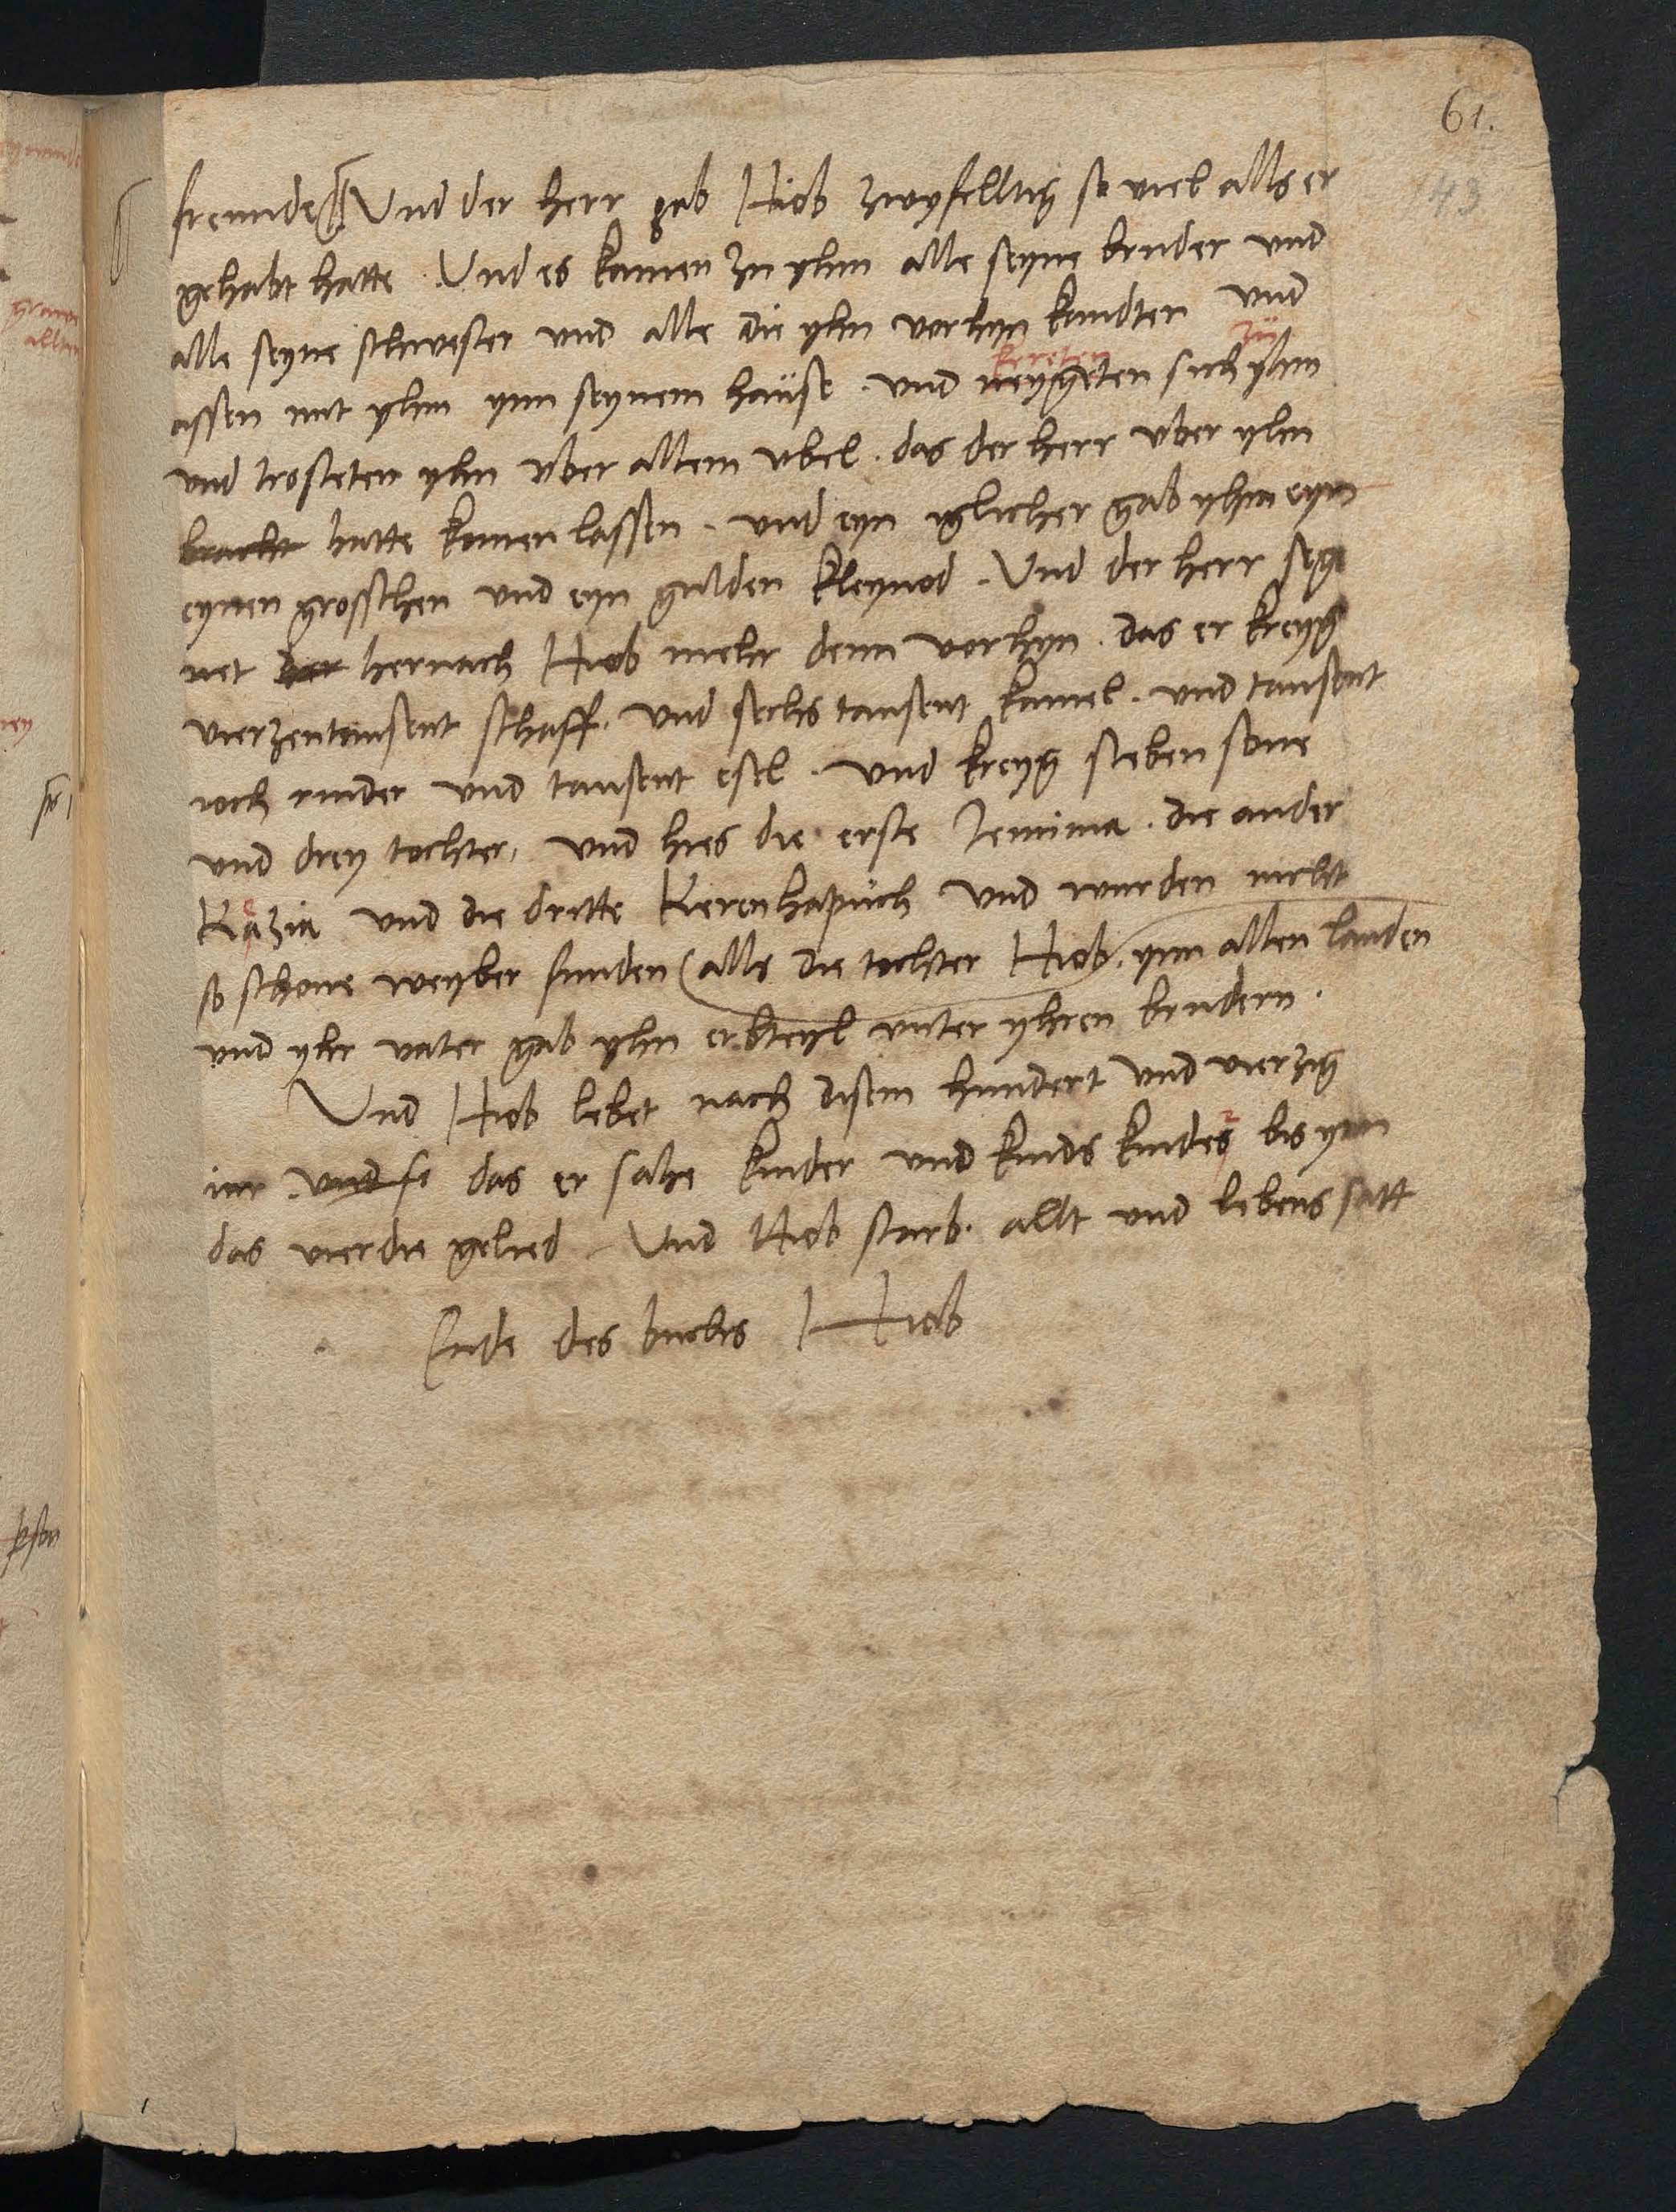 61.
43
freunde Und der herr gab Hiob zwyfelltig so viel alls er
gehabt hatte . Und es kamen zu yhm alle seyne bruder und
alle seyne schwester und alle die yhn vorhyn kandten und
kereten zu
assen mit yhm ynn seynem hause . und neygeten sich yhm
und trosteten yhn uber allem ubel . das der herr uber yhn
bracht hatte komen lassen . und eyn iglicher gab yhm eyn
eynen grosschen und eyn gulden kleynod . Und der herr seg
net der hernach Hiob mehr denn vorhyn . das er kreyg
vierzentausent schaff . und sechs tausent kamel . und tausent
ioch rinder und tausent esel . und kreyg sieben sone
und drey tochter, und hies die erste Jemima . die ander
Kazia und die dritte Kerenhapuch Und wurden nicht
so schone weyber funden (alls die tochter Hiob . ynn allen landen
und yhr vater gab yhn erbteyl unter yhren brudern .
Und Hiob lebet nach disem hundert und vierzig
iar . und se das er sahe kinder und kinds kindes bis ynn
das vierdte gelied Und Hiob starb . allt und lebens satt
Ende des buchs Hiob